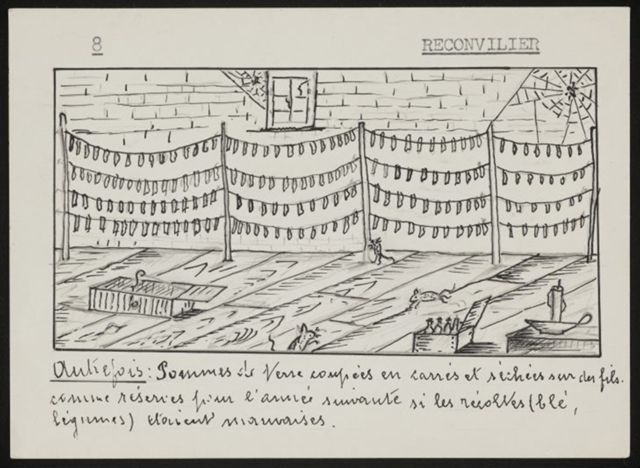 8
RECONVILIER
Autrefois: Pommes de Terre coupées en carrés et séchées sur des fils.
comme réserves pour l'année suivante si les récoltes (blé,
légumes) étaient mauvaises.